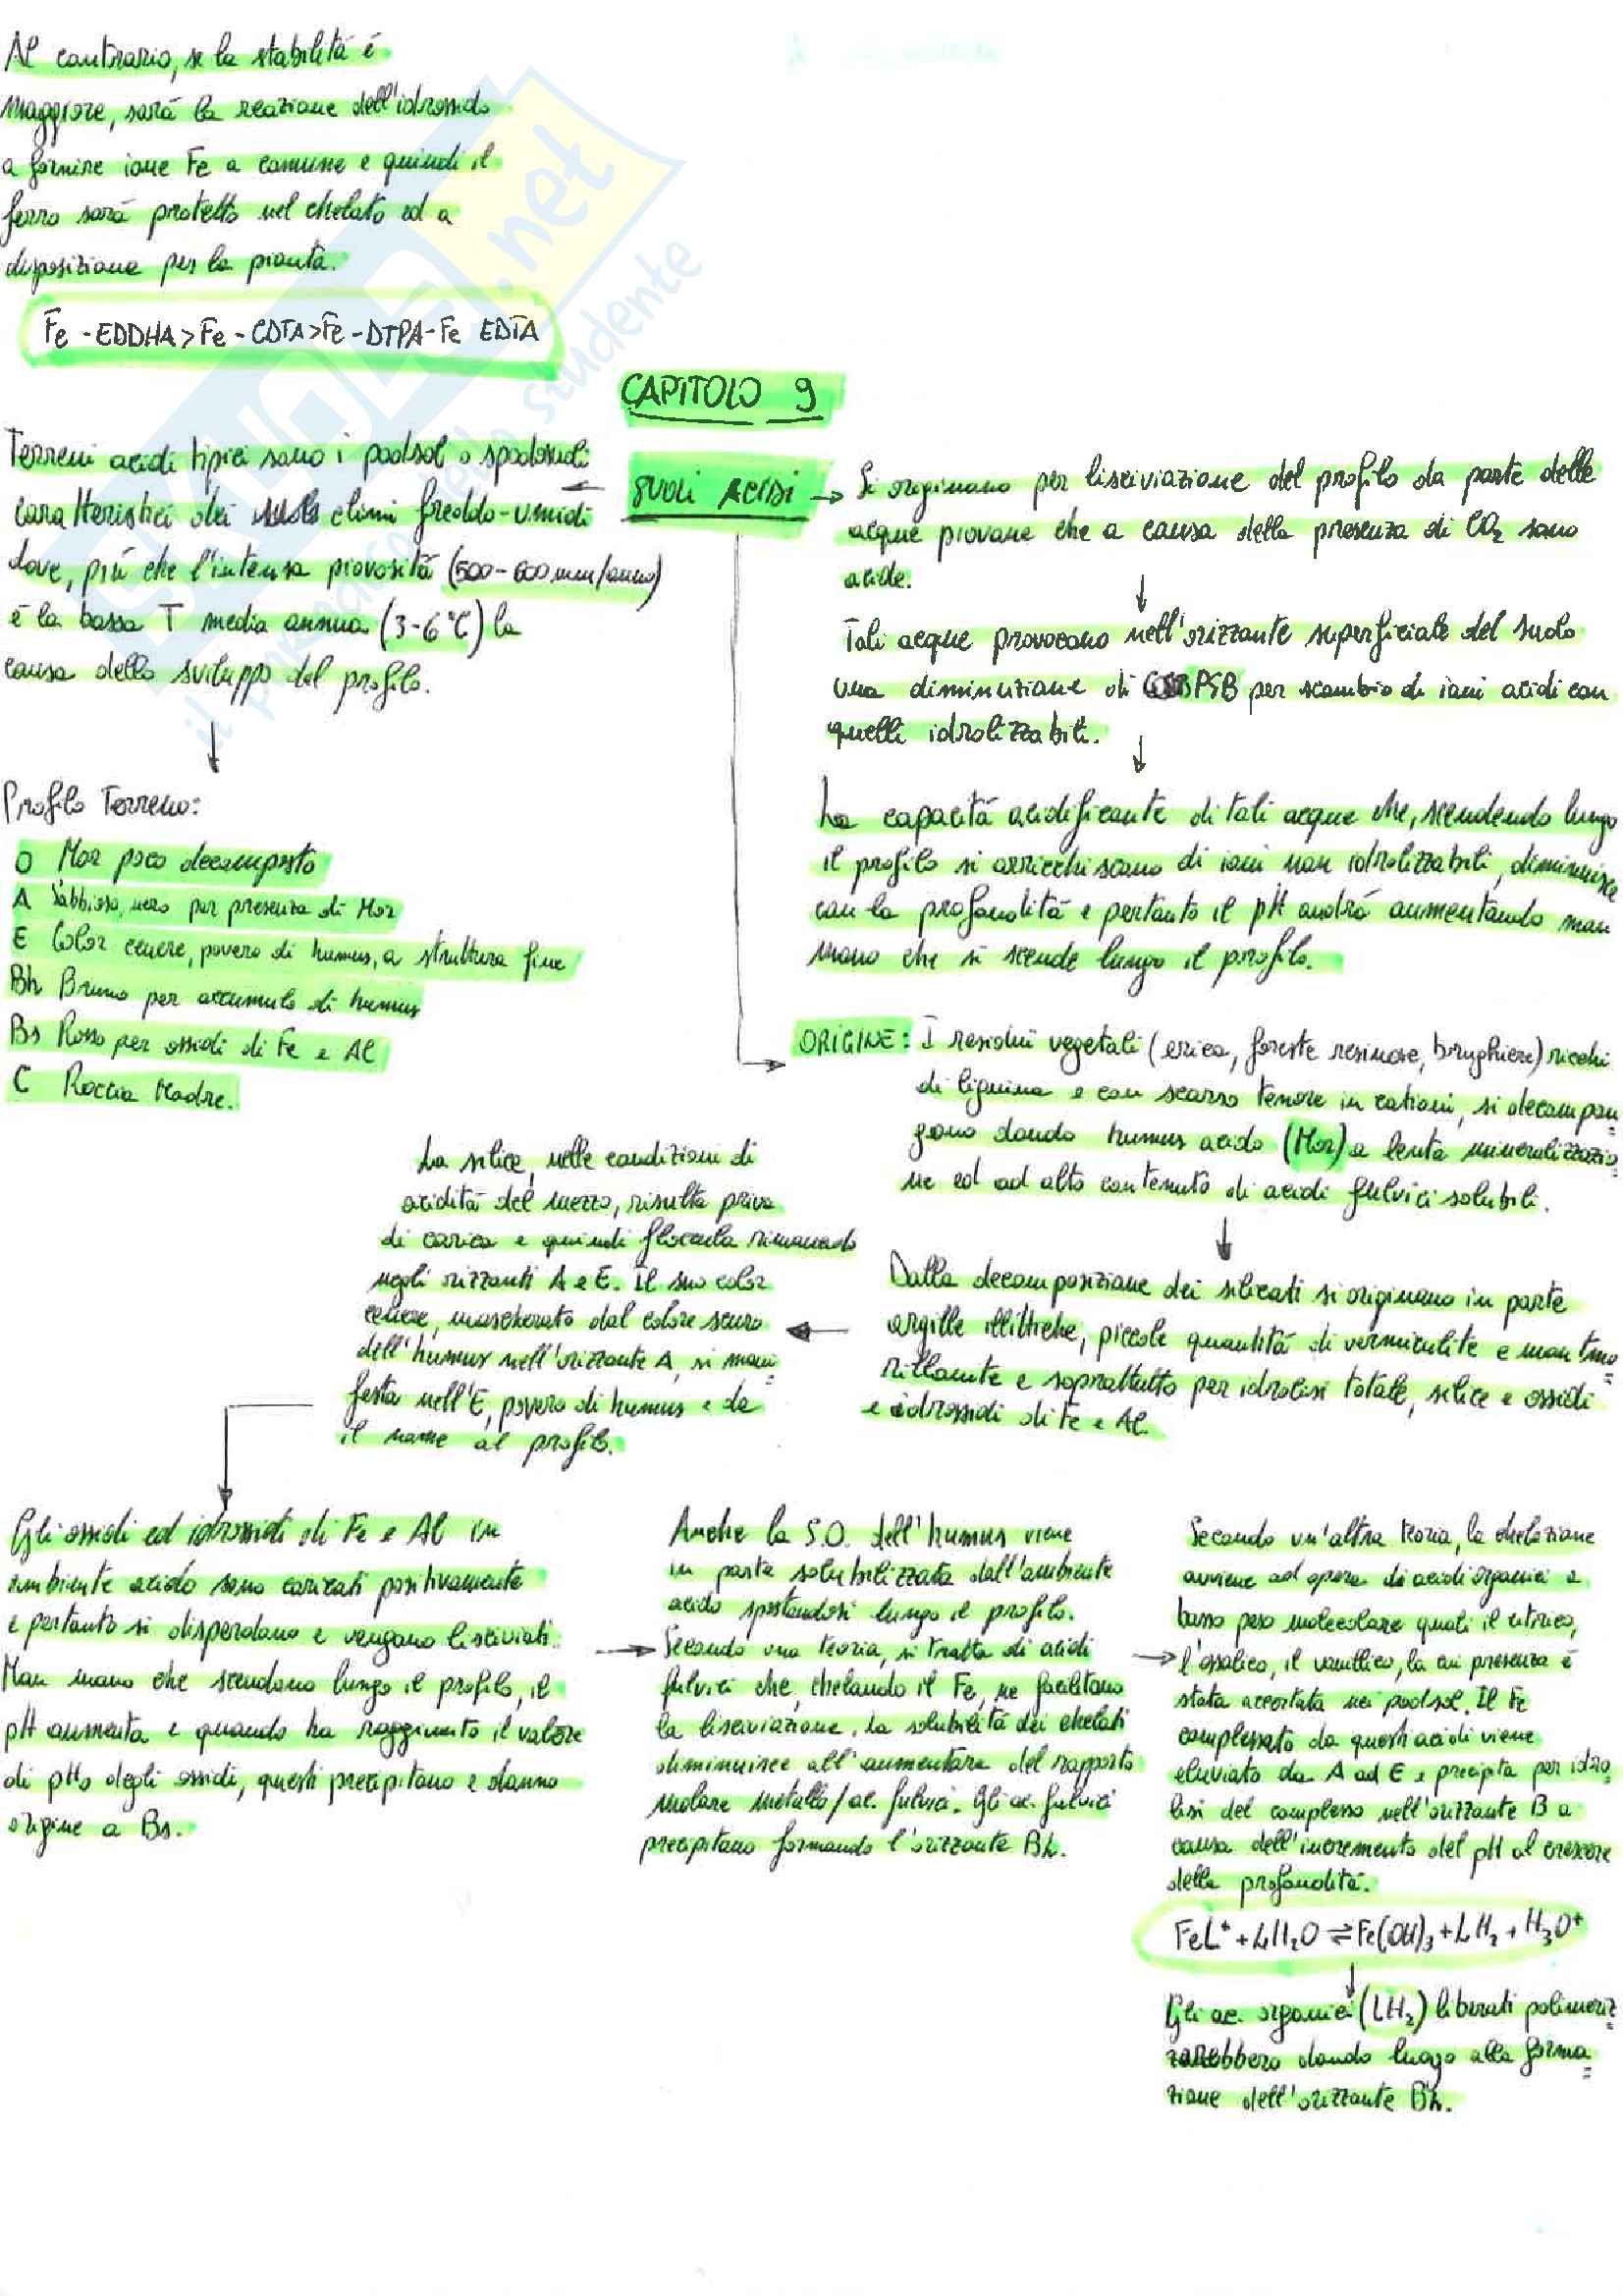 Al contrario, se la stabilità è
maggiore, sarà la reazione dell'idrossido
a fornire ione Fe a comune e quindi il
ferro sarà protetto nel chelato ed a
disposizione per la pianta.
Fe - EDDHA > Fe - CDTA > Fe - DTPA - Fe EDTA
CAPITOLO 9
SUOLI ACIDI
Terreni acidi tipici sono i podsol o spodosuoli
caratteristici dei climi freddo-umidi
dove, più che l'intensa piovosità (500-600 mm/anno)
è la bassa T media annua (3-6°C) la
causa dello sviluppo del profilo.
Profilo Terreno:
O Mor poco decomposto
A Sabbioso, nero per presenza di Mor
E Color cenere, povero di humus, a struttura fine
Bh Bruno per accumulo di humus
Bs Rosso per ossidi di Fe e Al
C Roccia Madre.
Si originano per lisciviazione del profilo da parte delle
acque piovane che a causa della presenza di CO2 sono
acide.
Tali acque provocano nell'orizzonte superficiale del suolo
una diminuzione di PSB per scambio di ioni acidi con
quelli idrolizzabili.
La capacità acidificante di tali acque che, scendendo lungo
il profilo si arricchiscono di ioni non idrolizzabili, diminuisce
con la profondità e pertanto il pH andrà aumentando man
mano che si scende lungo il profilo.
ORIGINE: I residui vegetali (erica, foreste resinose, brughiere) ricchi
di lignina e con scarso tenore in cationi, si decompon=
gono dando humus acido (Mor) a lenta mineralizzazio=
ne ed ad alto contenuto di acidi fulvici solubili.
Dalla decomposizione dei silicati si originano in parte
argille illitiche, piccole quantità di vermiculite e montmo=
rillonite e soprattutto per idrolisi totale, silice e ossidi
e idrossidi di Fe e Al.
La silice, nelle condizioni di
acidità del mezzo, risulta priva
di carica e quindi flocula rimanendo
negli orizzonti A e E. Il suo color
cenere, mascherato dal colore scuro
dell'humus nell'orizzonte A, si mani=
festa nell'E, povero di humus e da
il nome al profilo.
Gli ossidi ed idrossidi di Fe e Al in
ambiente acido sono caricati positivamente
e pertanto si disperdono e vengono lisciviati.
Man mano che scendono lungo il profilo, il
pH aumenta e quando ha raggiunto il valore
di pH0 degli ossidi, questi precipitano e danno
origine a Bs.
Anche la S.O. dell'humus viene
in parte solubilizzata dall'ambiente
acido spostandosi lungo il profilo.
Secondo una teoria, si tratta di acidi
fulvici che, chelando il Fe, ne facilitano
la lisciviazione. La solubilità dei chelati
diminuisce all'aumentare del rapporto
molare metallo/ac. fulvici. Gli ac. fulvici
precipitano formando l'orizzonte Bh.
Secondo un'altra teoria, la chelazione
avviene ad opera di acidi organici a
basso peso molecolare quali il citrico,
l'ossalico, il vanillico, la cui presenza è
stata accertata nei podsol. Il Fe
complessato da questi acidi viene
eluviato da A ad E e precipita per idro=
lisi del complesso nell'orizzonte B a
causa dell'incremento del pH al crescere
della profondità.
FeL+ + 4H2O ⇌ Fe(OH)3 + LH2 + H3O+
Gli ac. organici (LH2) liberati polimeriz=
zerebbero dando luogo alla forma=
zione dell'orizzonte Bh.
.net